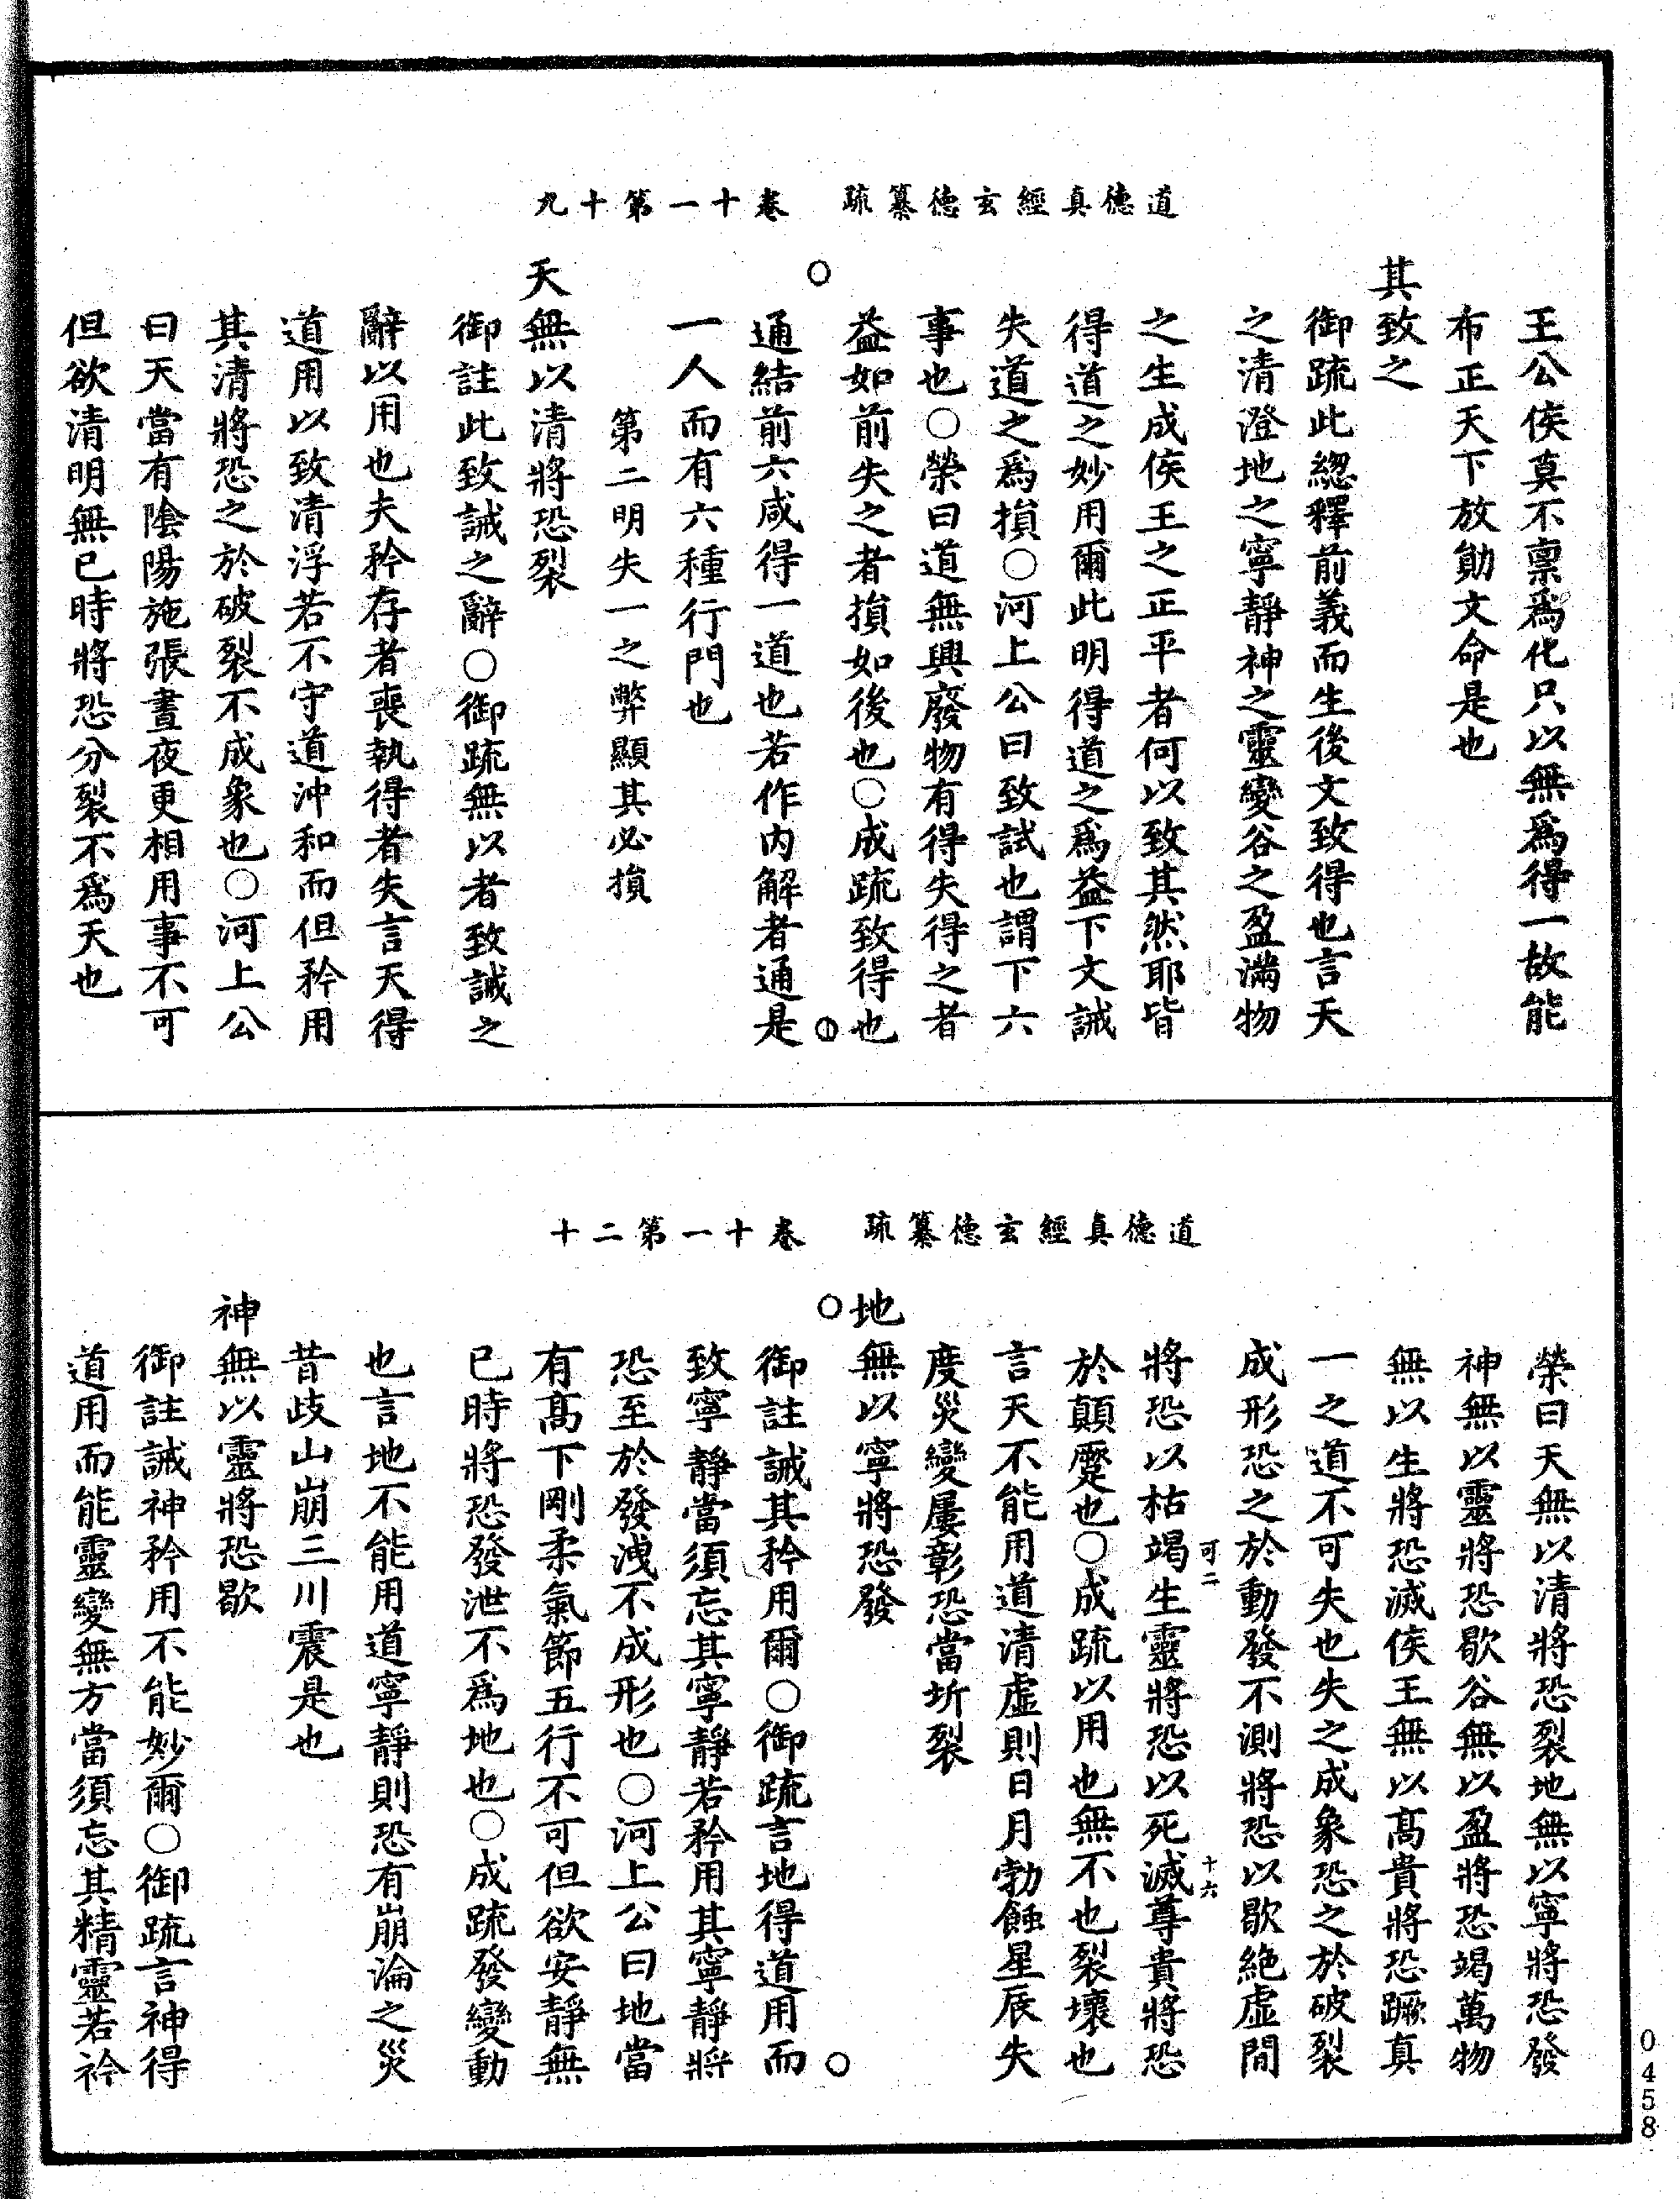 道德真經玄德纂疏　卷十一第十九
王公侯莫不稟爲化只以無爲得一故能
布正天下放勛文命是也
其致之
御疏此總釋前義而生後文致得也言天
之清澄地之寧靜神之靈變谷之盈滿物
之生成侯王之正平者何以致其然耶皆
得道之妙用爾此明得道之爲益下文誡
失道之爲損○河上公曰致試也謂下六
事也○榮曰道無興廢物有得失得之者
益如前失之者損如後也○成疏致得也
通結前六咸得一道也若作內解者通是
一人而有六種行門也
第二明失一之弊顯其必損
天無以清將恐裂
御註此致誡之辭○御疏無以者致誡之
辭以用也夫矜存者喪執得者失言天得
道用以致清浮若不守道沖和而但矜用
其清將恐之於破裂不成象也○河上公
曰天當有陰陽施張晝夜更相用事不可
但欲清明無已時將恐分裂不爲天也
道德真經玄德纂疏　卷十一第二十
榮曰天無以清將恐裂地無以寧將恐發
神無以靈將恐歇谷無以盈將恐竭萬物
無以生將恐滅侯王無以高貴將恐蹶真
一之道不可失也失之成象恐之於破裂
成形恐之於動發不測將恐以歇絕虛間
可二　十六
將恐以枯竭生靈將恐以死滅尊貴將恐
於顛蹷也○成疏以用也無不也裂壞也
言天不能用道清虛則日月勃蝕星辰失
度災變屢彰恐當圻裂
地無以寧將恐發
御註誡其矜用爾○御疏言地得道用而
致寧靜當須忘其寧靜若矜用其寧靜將
恐至於發洩不成形也○河上公曰地當
有高下剛柔氣節五行不可但欲安靜無
已時將恐發泄不爲地也○成疏發變動
也言地不能用道寧靜則恐有崩淪之災
昔歧山崩三川震是也
神無以靈將恐歇
御註誡神矜用不能妙爾○御疏言神得
道用而能靈變無方當須忘其精靈若矜
0458